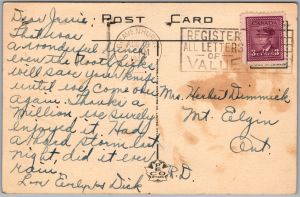 POST CARD
Dear Irvie:
That was
a wonderful lunch
even the tooth picks
will save your knife
until we come over
again. Thanks a
Million we surely
enjoyed it. Had
a hard storm last
night, did it ever
rain.
Love Evelyn & Dick
REGISTER
ALL LETTERS
OF
VALUE
CANADA
Mrs. Herb Dimmick
Mt. Elgin
Ont
R.D.